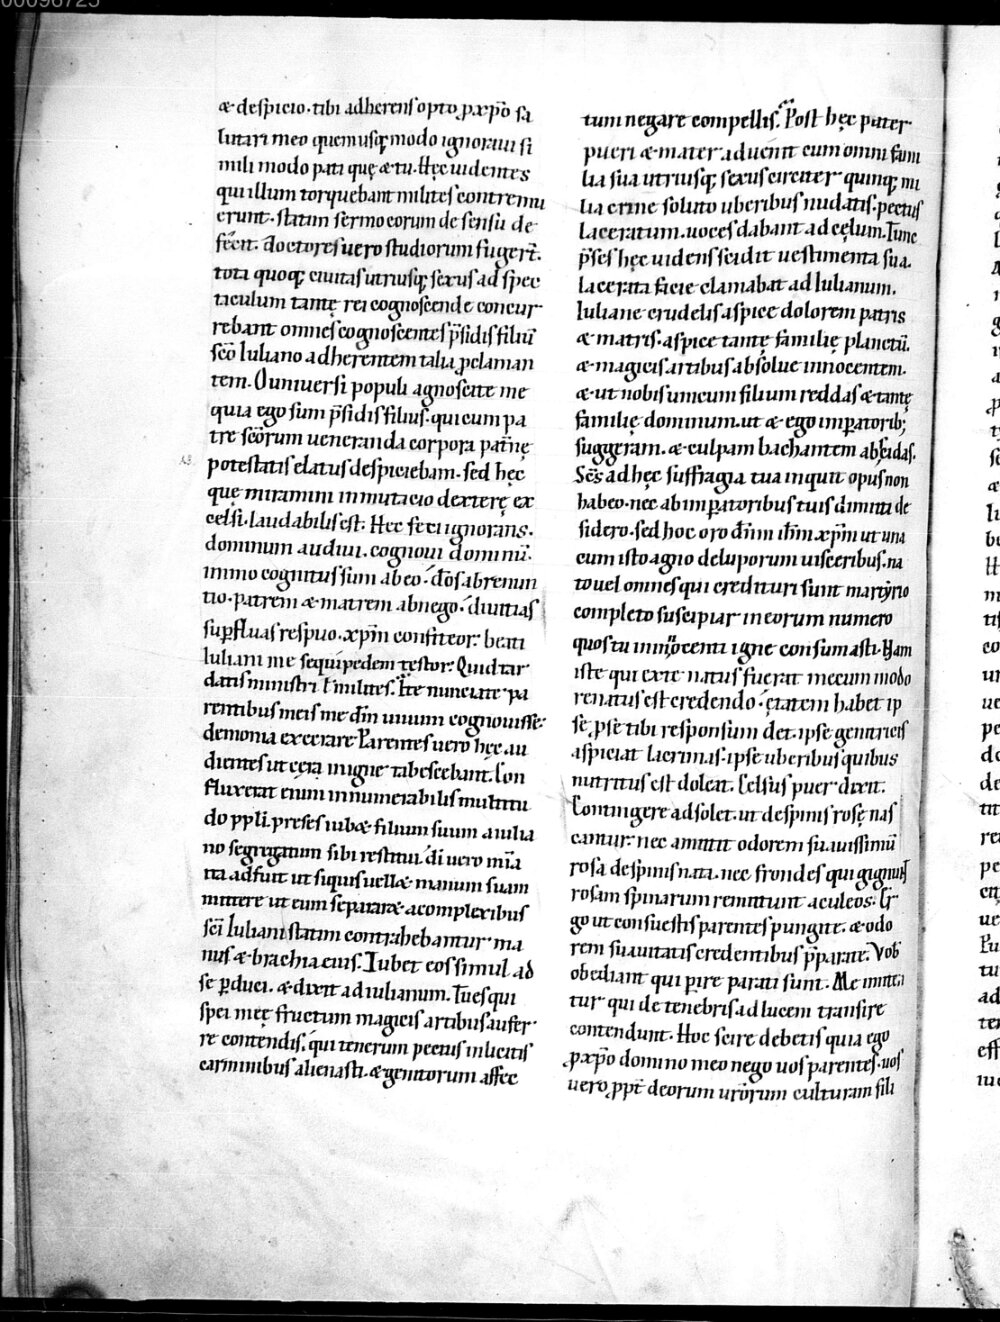 00096725
& despicio. tibi adherens opto ꝓ xp̄o sa
lutari meo quemusq; modo ignoraui si
mili modo pati quę & tu. Hęc uidentes
qui illum torquebant milites contremu
erunt. statim sermo eorum de sensu de
fecit. doctores uero studiorum fuger̄t.
tota quoq; ciuitas utriusq; sexus ad spec
taculum tantę rei cognoscende concur
rebant omnes cognoscentes p̄sidis filiū
sc̄o Iuliano adherentem talia ꝓclaman
tem. O uniuersi populi agnoscite me
quia ego sum p̄sidis filius. qui cum pa
tre sc̄orum ueneranda corpora pat̄nę
potestatis elatus despiciebam. sed hęc
quę miramini inmutacio dexterę ex
celsi. laudabilis est. Hęc feci ignorans.
dominum audiui. cognoui dominū.
immo cognitus sum ab eo. d̄os abrenun
tio. patrem & matrem abnego. diuitias
suꝑfluas respuo. xp̄m confiteor. beati
Iuliani me sequipedem testor. Quid tar
datis ministri ł milites. Ite nunciate pa
rentibus meis me dm̄ uiuum cognouisse.
demonia execrare. Parentes uero hęc au
dientes ut cera in igne tabescebant. Con
fluxerat enim innumerabilis multitu
do ppl̄i. preses iub& filium suum a iulia
no segregatum sibi restitui. di uero mīa
ita adfuit ut si quis uell& manum suam
mittere ut eum separar& a complexibus
sc̄i Iuliani statim contrahebantur ma
nus & brachia eius. Iubet eos simul ad
se ꝑduci. & dixit ad iulianum. Tu es qui
spei meę fructum magicis artibus aufer
re contendis. qui tenerum pectus inlicitis
carminibus alienasti. & genitorum affec
tum negare compellis. Post hęc pater
pueri & mater aduenit cum omni fami
lia sua utriusq; sexus circiter quinq; mi
lia crine soluto uberibus nudatis. pectus
laceratum. uoces dabant ad cęlum. Tunc
p̄ses hęc uidens scidit uestimenta sua.
lacerata facie clamabat ad Iulianum.
Iuliane crudelis aspice dolorem patris
& matris. aspice tantę familię planctū.
& magicis artibus absolue innocentem.
& ut nobis unicum filium reddas & tantę
familię dominum. ut & ego inꝑatorib;
suggeram. & culpam bachantem abscidas.
Sc̄s ad hęc suffragia tua inquit opus non
habeo. nec ab inꝑatoribus tuis dimitti de
sidero. sed hoc oro dn̄m ihm̄ xp̄m ut una
cum isto agno de luporum uisceribus. na
to uel omnes qui credituri sunt martyrio
completo suscipiar in eorum numero
quos tu innocenti igne consumasti. Nam
iste qui ex te natus fuerat mecum modo
renatus est credendo. ętatem habet ip
se. ꝓ se tibi responsum det. ipse genitricis
aspiciat lacrimas. ipse uberibus quibus
nutritus est doleat. Celsus puer dixit.
Contingere ad solet. ut de spinis rosę nas
cantur. nec amittit odorem suauissimū
rosa de spinis nata. nec frondes qui gignunt
rosam spinarum remittunt aculeos. Er
go ut consuestis parentes pungite. & odo
rem suauitatis credentibus p̄parate. Vob̄
obediant qui ꝑire parati sunt. Me imita
tur qui de tenebris ad lucem transire
contendunt. Hoc scire debetis quia ego
ꝓ xp̄o domino meo nego uos parentes. uos
uero ꝓpt̄ deorum ur̄orum culturam fili